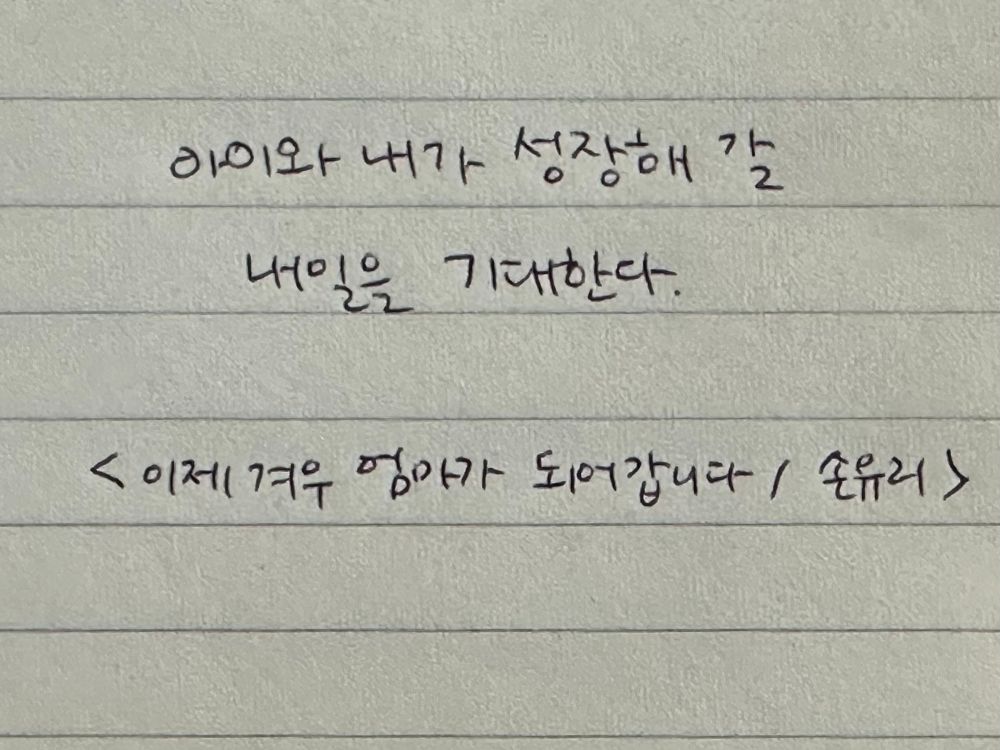 아이와 내가 성장해 갈
내일을 기대한다.
<이제 겨우 엄마가 되어갑니다 / 손유리>